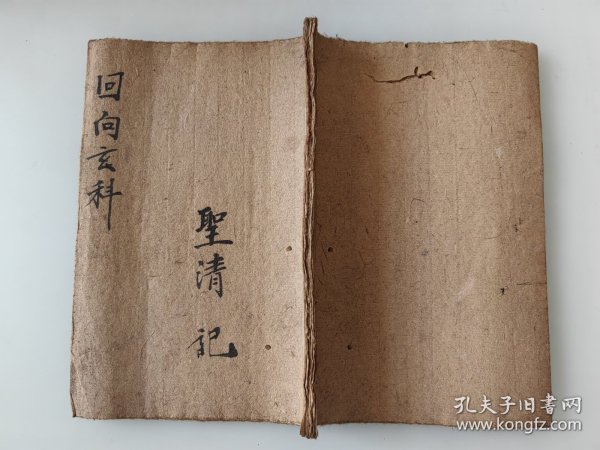 回向玄科
聖清 記
孔夫子旧書网
www.kongfz.com